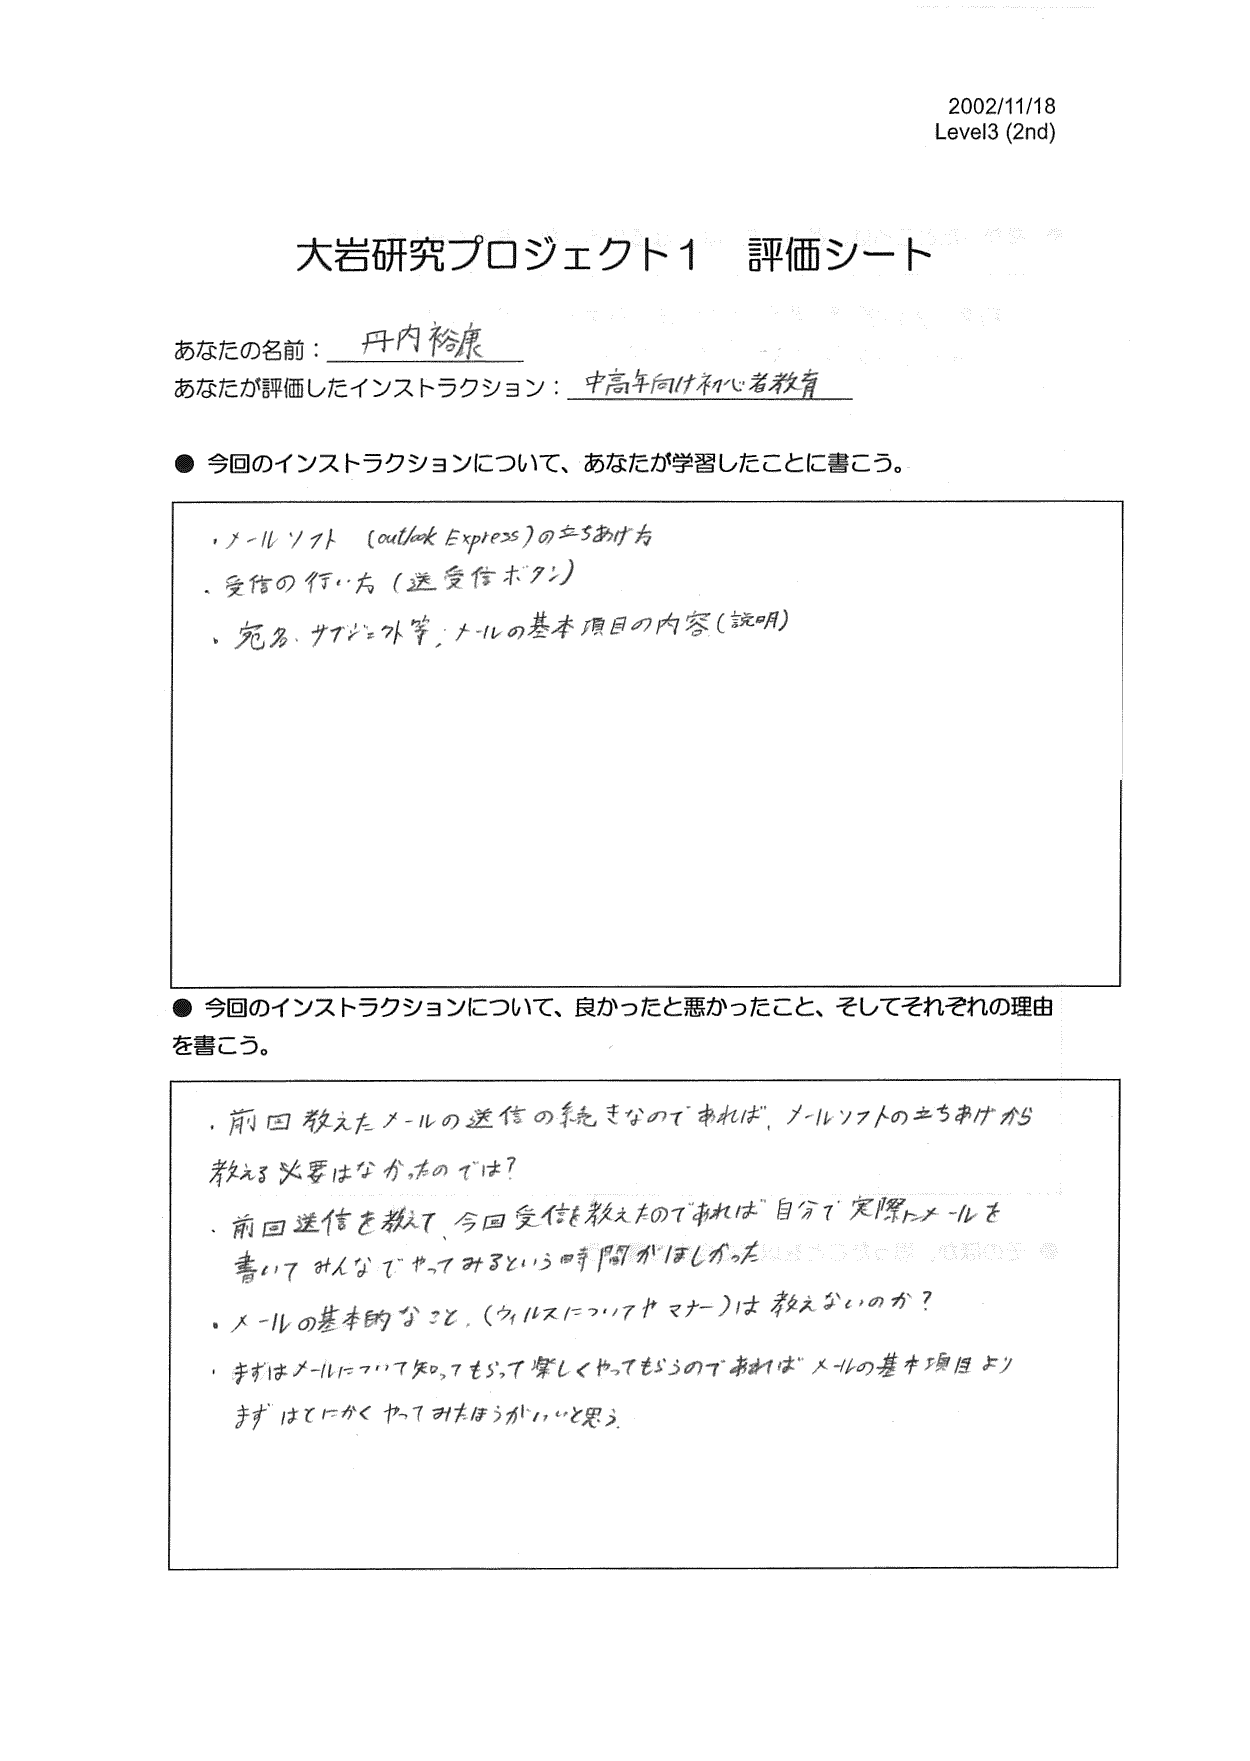 2002/11/18
Level3 (2nd)
大岩研究プロジェクト1　評価シート
あなたの名前：丹内裕康
あなたが評価したインストラクション：中高年向け初心者教育
● 今回のインストラクションについて、あなたが学習したことに書こう。
・メールソフト (outlook Express)の立ちあげ方
・受信の行い方（送受信ボタン）
・宛名、サブジェクト等、メールの基本項目の内容（説明）
● 今回のインストラクションについて、良かったと悪かったこと、そしてそれぞれの理由
を書こう。
・前回教えたメールの送信の続きなのであれば、メールソフトの立ちあげから
教える必要はなかったのでは？
・前回送信を教えて、今回受信を教えたのであれば自分で実際にメールを
書いてみんなでやってみるという時間がほしかった
・メールの基本的なこと、（ウィルスについてやマナー）は教えないのか？
・まずはメールについて知ってもらって楽しくやってもらうのであればメールの基本項目より
まずはとにかくやってみたほうがいいと思う。